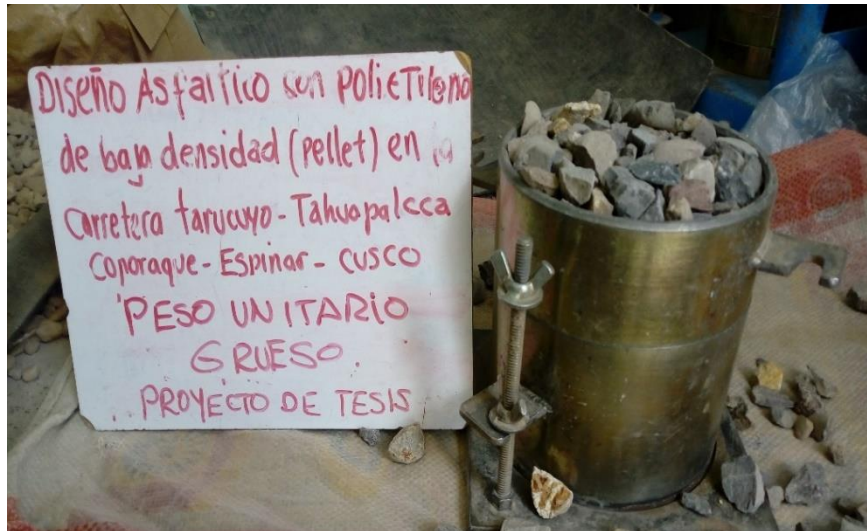 Diseño Asfaltico con Polietileno
de baja densidad (pellet) en la
Carretera tarucuyo - Tahuapalcca
Coporaque - Espinar - CUSCO
PESO UNITARIO
GRUESO.
PROYECTO DE TESIS